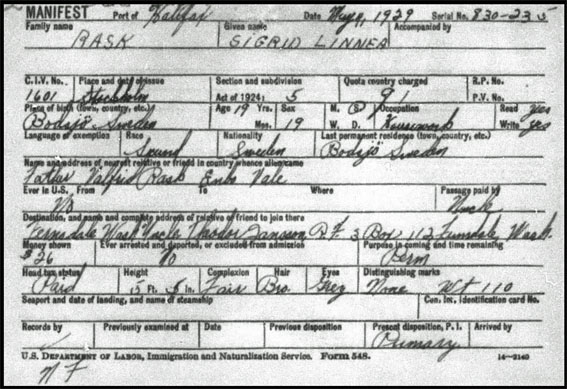 MANIFEST Port of Halifax Date May 1929 Serial No. 830-235
Family name Given name Accompanied by
RASK SIGRID LINNEA
C.I.V. No. Place and date of issue Section and subdivision Quota country charged R.P. No.
1601 Stockholm Act of 1924: 5 P.V. No.
Place of birth (town, country, etc.) Age 19 Yrs. Sex M. S Occupation Read yes
Bodsjö Sweden Mos. W. D. Housework Write yes
Language of exemption Race Nationality Last permanent residence (town, country, etc.)
Scand Sweden Bodsjö Sweden
Name and address of nearest relative or friend in country whence alien came
Father Valfrid Rask
Ever in U.S. From To Where Passage paid by
No Uncle
Destination, and name and complete address of relative or friend to join there
Ferndale Wash Uncle R.F. 3 Box 112 Ferndale Wash.
Money shown Ever arrested and deported, or excluded from admission Purpose in coming and time remaining
$26 No Perm
Head tax status Height Complexion Hair Eyes Distinguishing marks
Paid 5 Ft. 5 in. Fair Bro. Grey None Wt 110
Seaport and date of landing, and name of steamship Con. Int. identification card No.
Records by Previously examined at Date Previous disposition Present disposition, P. I. Arrived by
Primary
U.S. DEPARTMENT OF LABOR, Immigration and Naturalization Service. Form 548. 14—2140
NF